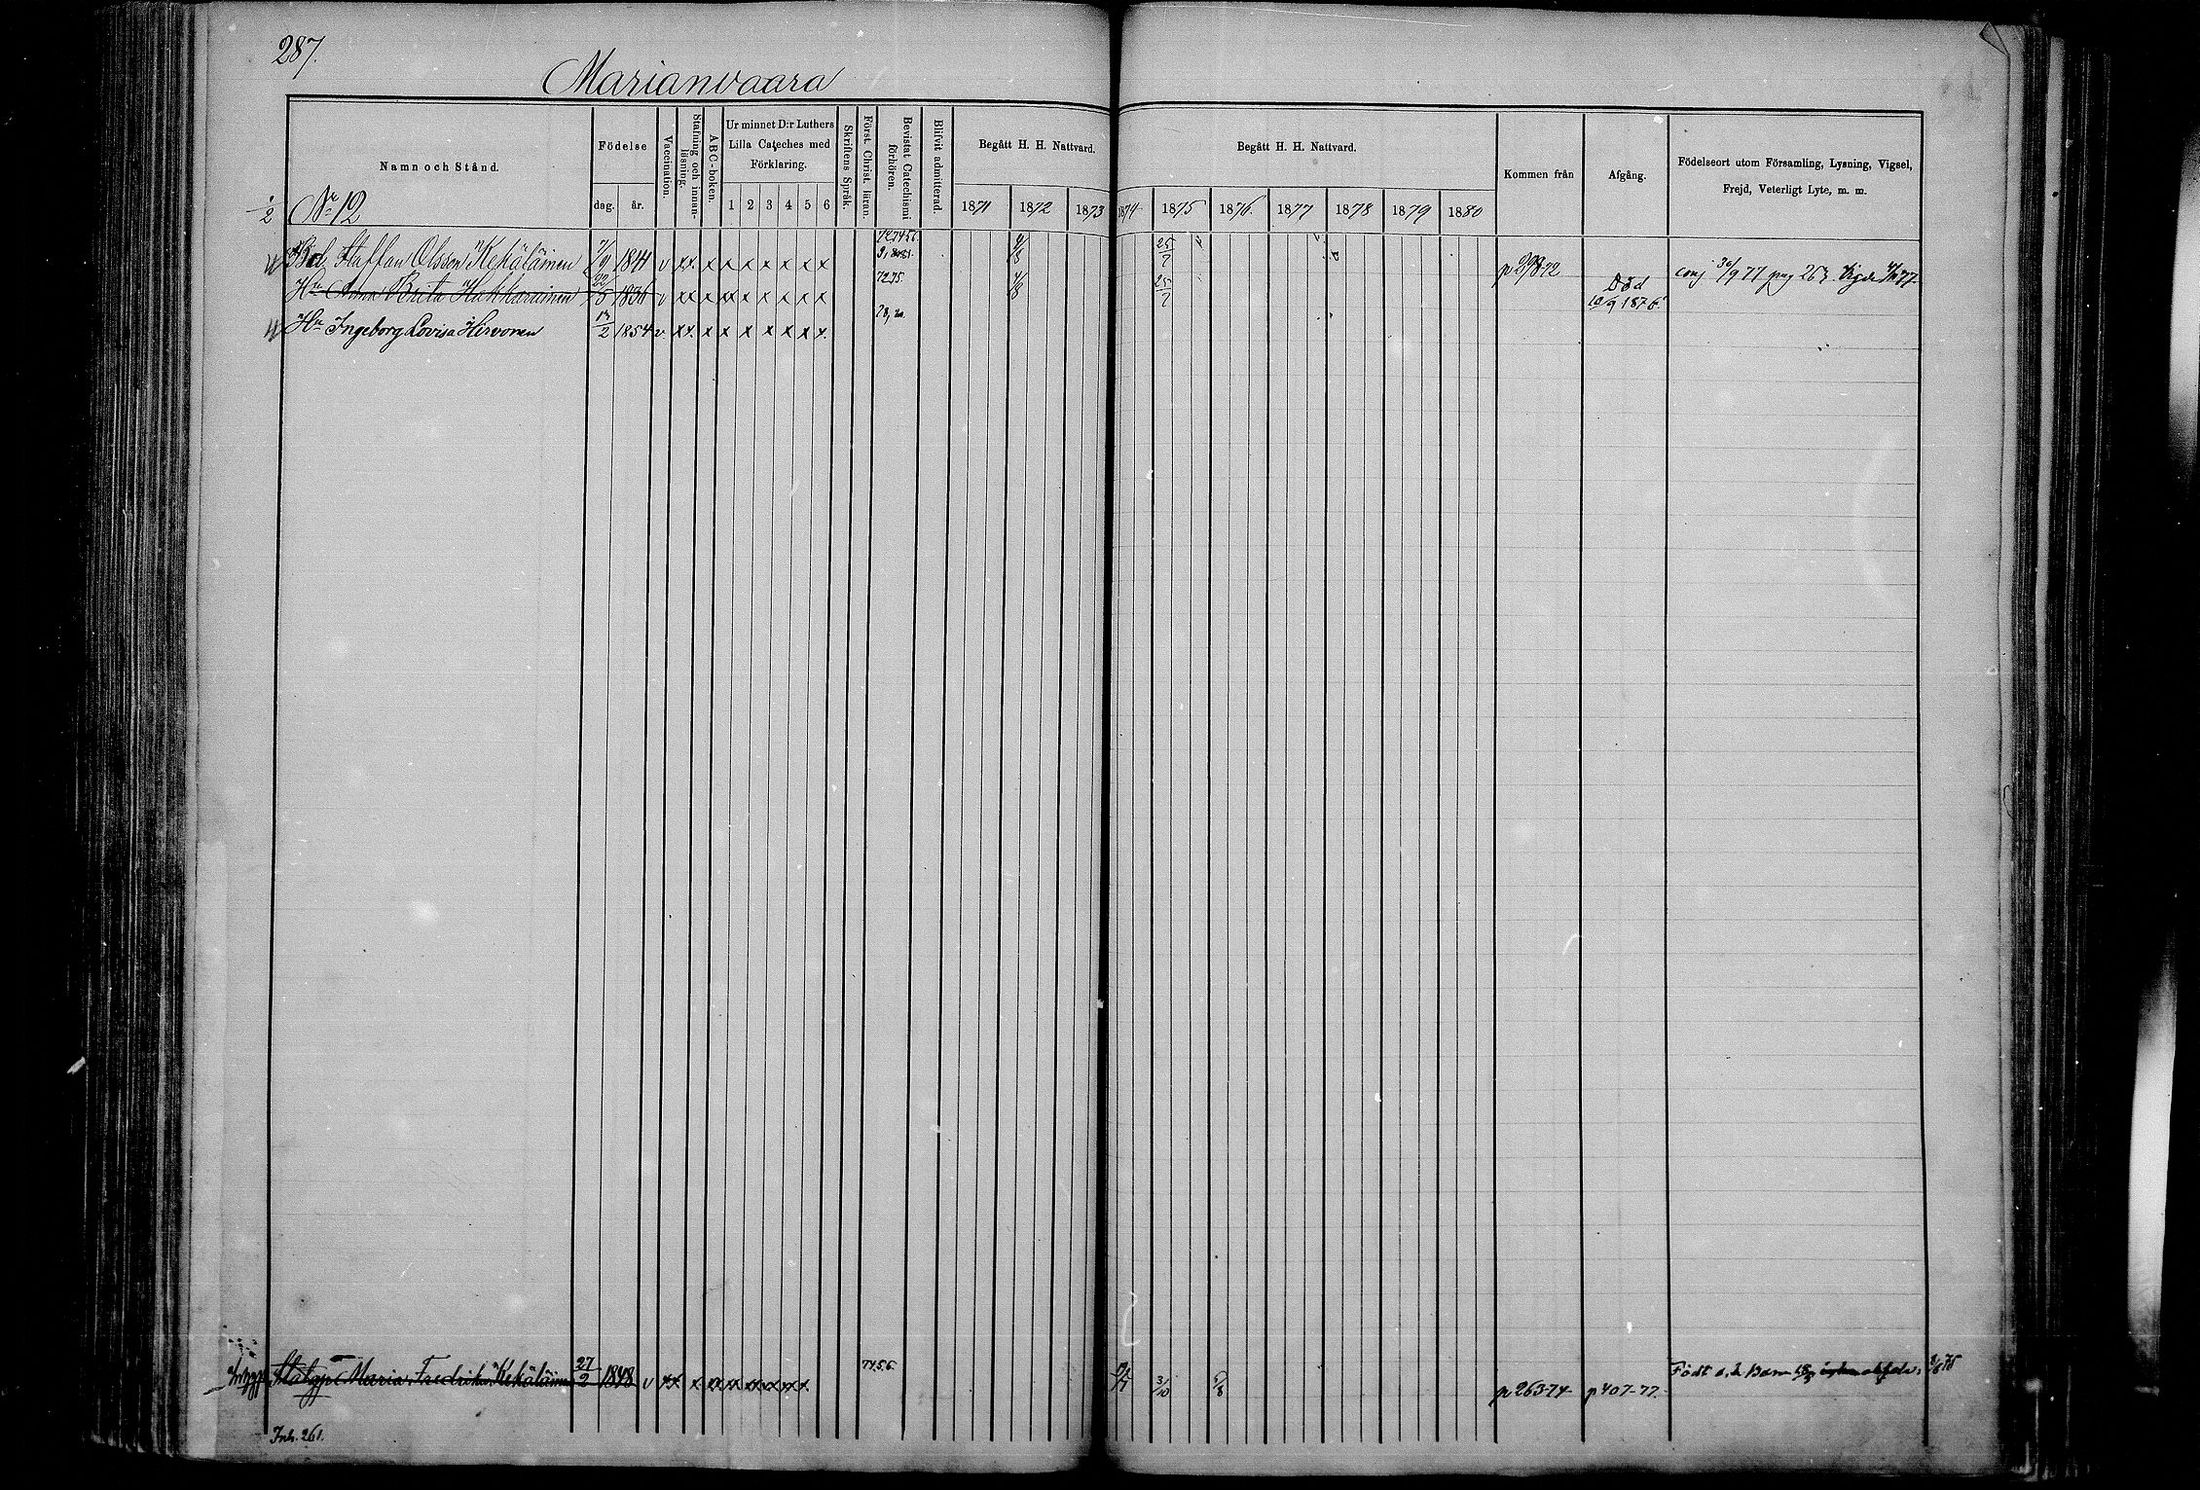 287.
Marianvaara
Namn och Stånd.
Födelse
dag. år.
Vaccination.
Stafning och innanläsning.
ABC-boken.
Ur minnet D:r Luthers Lilla Cateches med Förklaring.
1 2 3 4 5 6
Skriftens Språk.
Först. Christ. läran.
Bevistat Catechismi förhören.
Blifvit admitterad.
Begått H. H. Nattvard.
1871 1872 1873
Begått H. H. Nattvard.
1874 1875 1876. 1877 1878 1879 1880
Kommen från
Afgång.
Födelseort utom Församling, Lysning, Vigsel, Frejd, Veterligt Lyte, m. m.
1/2 No 12
Staffan Olsson Kekäläinen 1844 v xx x x x x x x x 4/8 25/7 p 298-72 conj 30/9 77 pag 263.
Hu Anna Brita Hakkarainen 22/5 1836 v xx x x x x x x x 72 75. 4/8 25/7 Död 10/9 1876.
Hu Ingeborg Lovisa Hirvonen 13/2 1854 v. xx. x x x x x x x.
Maria Fredrika Kekäläinen 27/2 1848 v xx x x x x x x x 74 5 6. 3/10 5/8 p 263-74- p 407-77. Födt o. ä. Barn
Inh. 261.